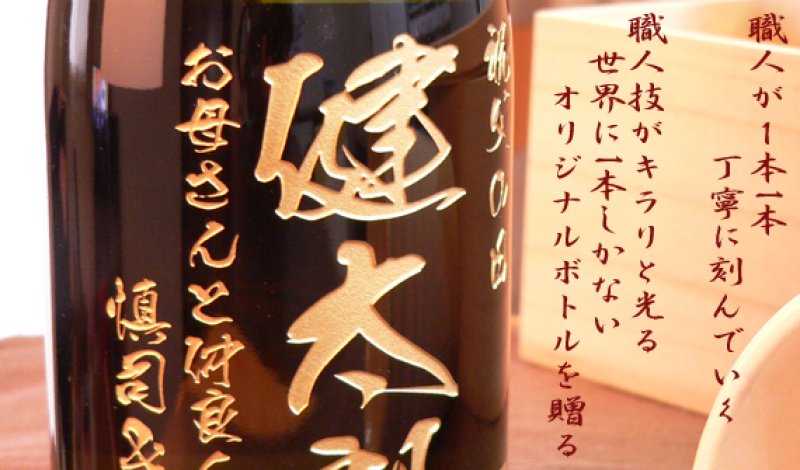 職人が1本1本
丁寧に刻んでいく
職人技がキラリと光る
世界に一本しかない
オリジナルボトルを贈る
祝父の日
健太郎
お母さんと仲良く
慎司